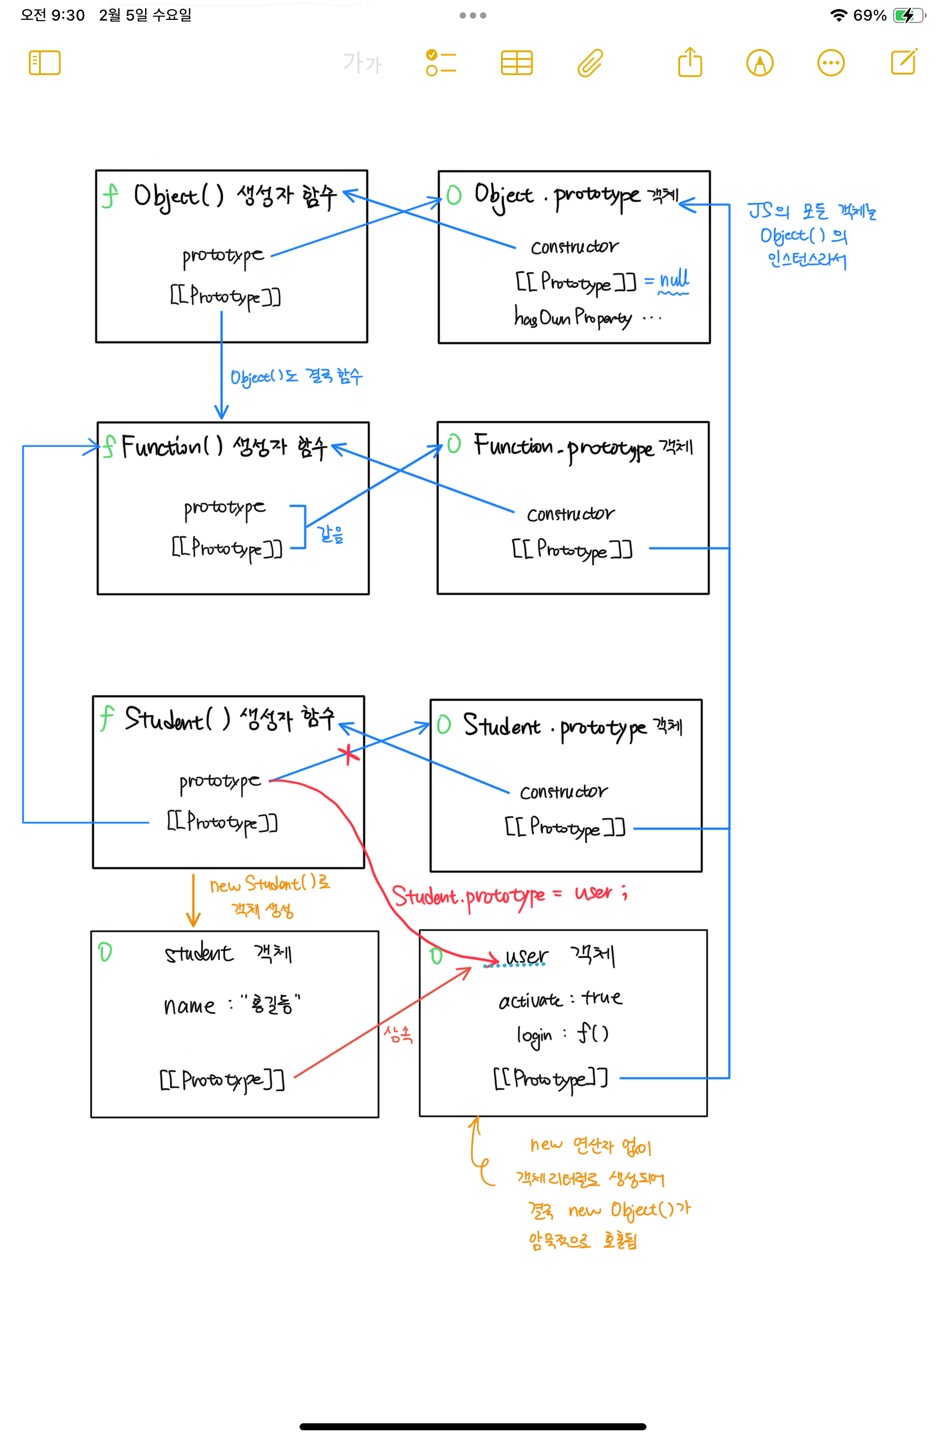 오전 9:30 2월 5일 수요일
69%
가가
f Object() 생성자 함수
prototype
[[Prototype]]
O Object.prototype 객체
constructor
[[Prototype]] = null
hasOwnProperty ...
JS의 모든 객체는
Object()의
인스턴스라서
Object()도 결국 함수
f Function() 생성자 함수
prototype
[[Prototype]]
같음
O Function.prototype 객체
constructor
[[Prototype]]
f Student() 생성자 함수
prototype
[[Prototype]]
O Student.prototype 객체
constructor
[[Prototype]]
new Student()로
객체 생성
Student.prototype = user;
O student 객체
name : "홍길동"
[[Prototype]]
상속
O user 객체
activate : true
login : f()
[[Prototype]]
new 연산자 없이
객체 리터럴로 생성되어
결국 new Object()가
암묵적으로 호출됨